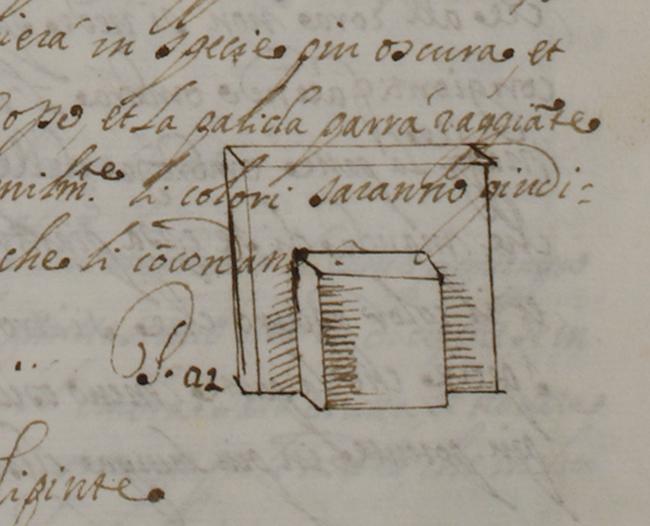 ierá in specie piu oscura et
ope et la palida parrá raggiāte
milm.te li colori saranno giudi=
che li cōcordano
P. a2
dipinte.